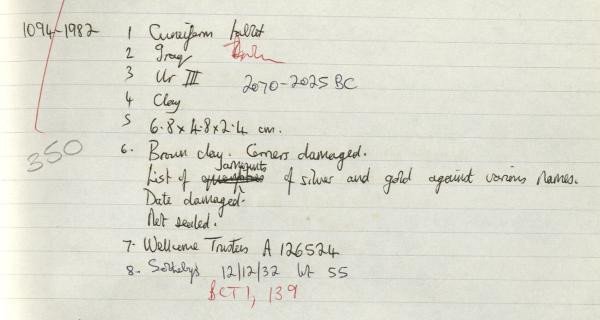 1094-1982 1 Cuneiform tablet
2 Iraq
3 Ur III 2070-2025 BC
4 Clay
5 6.8 x 4.8 x 2.4 cm.
350
6. Brown clay. Corners damaged.
List of amounts of silver and gold against various names.
Date damaged.
Not sealed.
7. Wellcome Trustees A 126524
8. Sothebys 12/12/32 lot 55
BCT I, 139